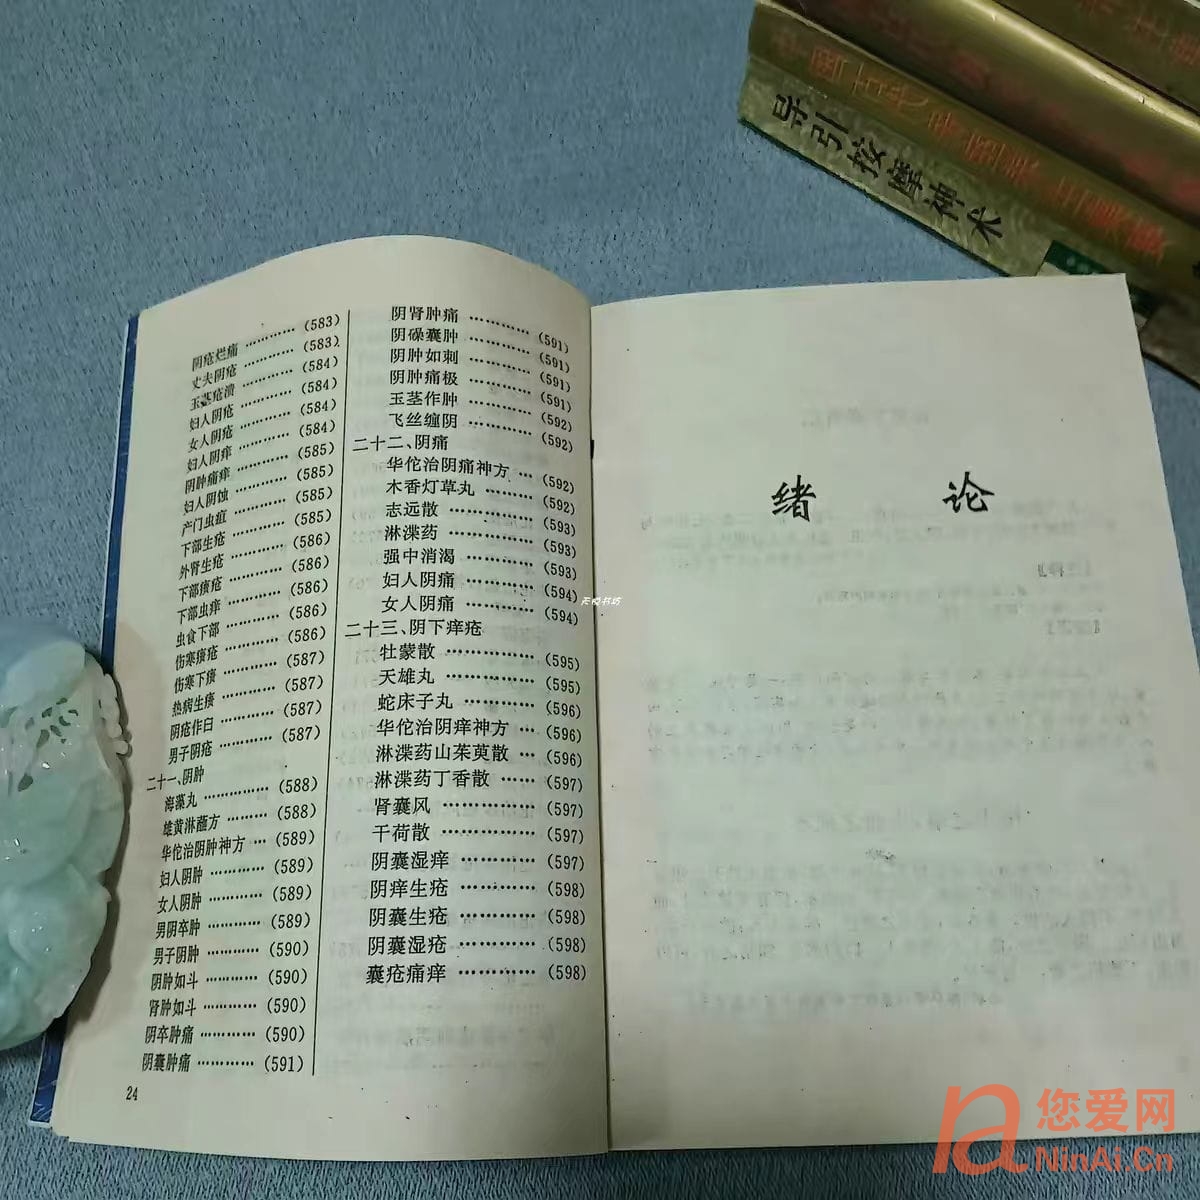 导引按摩神术
阴疮烂痛 ………… (583)
丈夫阴疮 ………… (583)
玉茎疮溃 ………… (584)
妇人阴疮 ………… (584)
女人阴疮 ………… (584)
妇人阴痒 ………… (584)
阴肿痛痒 ………… (585)
妇人阴蚀 ………… (585)
产门虫疽 ………… (585)
下部生疮 ………… (585)
外肾生疮 ………… (586)
下部𤸷疮 ………… (586)
下部虫痒 ………… (586)
虫食下部 ………… (586)
伤寒𤸷疮 ………… (587)
伤寒下𤸷 ………… (587)
热病生𤸷 ………… (587)
阴疮作臼 ………… (587)
男子阴疮 …………
二十一、阴肿
海藻丸 …………… (588)
雄黄淋蘸方 ……… (588)
华佗治阴肿神方 … (589)
妇人阴肿 ………… (589)
女人阴肿 ………… (589)
男阴卒肿 ………… (589)
男子阴肿 ………… (590)
阴肿如斗 ………… (590)
肾肿如斗 ………… (590)
阴卒肿痛 ………… (590)
阴囊肿痛 ………… (591)
24
阴肾肿痛 ………… (591)
阴𤺊囊肿 ………… (591)
阴肿如刺 ………… (591)
阴肿痛极 ………… (591)
玉茎作肿 ………… (592)
飞丝缠阴 ………… (592)
二十二、阴痛
华佗治阴痛神方 … (592)
木香灯草丸 ……… (592)
志远散 …………… (593)
淋渫药 …………… (593)
强中消渴 ………… (593)
妇人阴痛 ………… (594)
女人阴痛 ………… (594)
二十三、阴下痒疮
牡蒙散 …………… (595)
天雄丸 …………… (595)
蛇床子丸 ………… (596)
华佗治阴痒神方 … (596)
淋渫药山茱萸散 … (596)
淋渫药丁香散 …… (597)
肾囊风 …………… (597)
干荷散 …………… (597)
阴囊湿痒 ………… (597)
阴痒生疮 ………… (598)
阴囊生疮 ………… (598)
阴囊湿疮 ………… (598)
囊疮痛痒 ………… (598)
绪 论
您爱网
NinAi.Cn